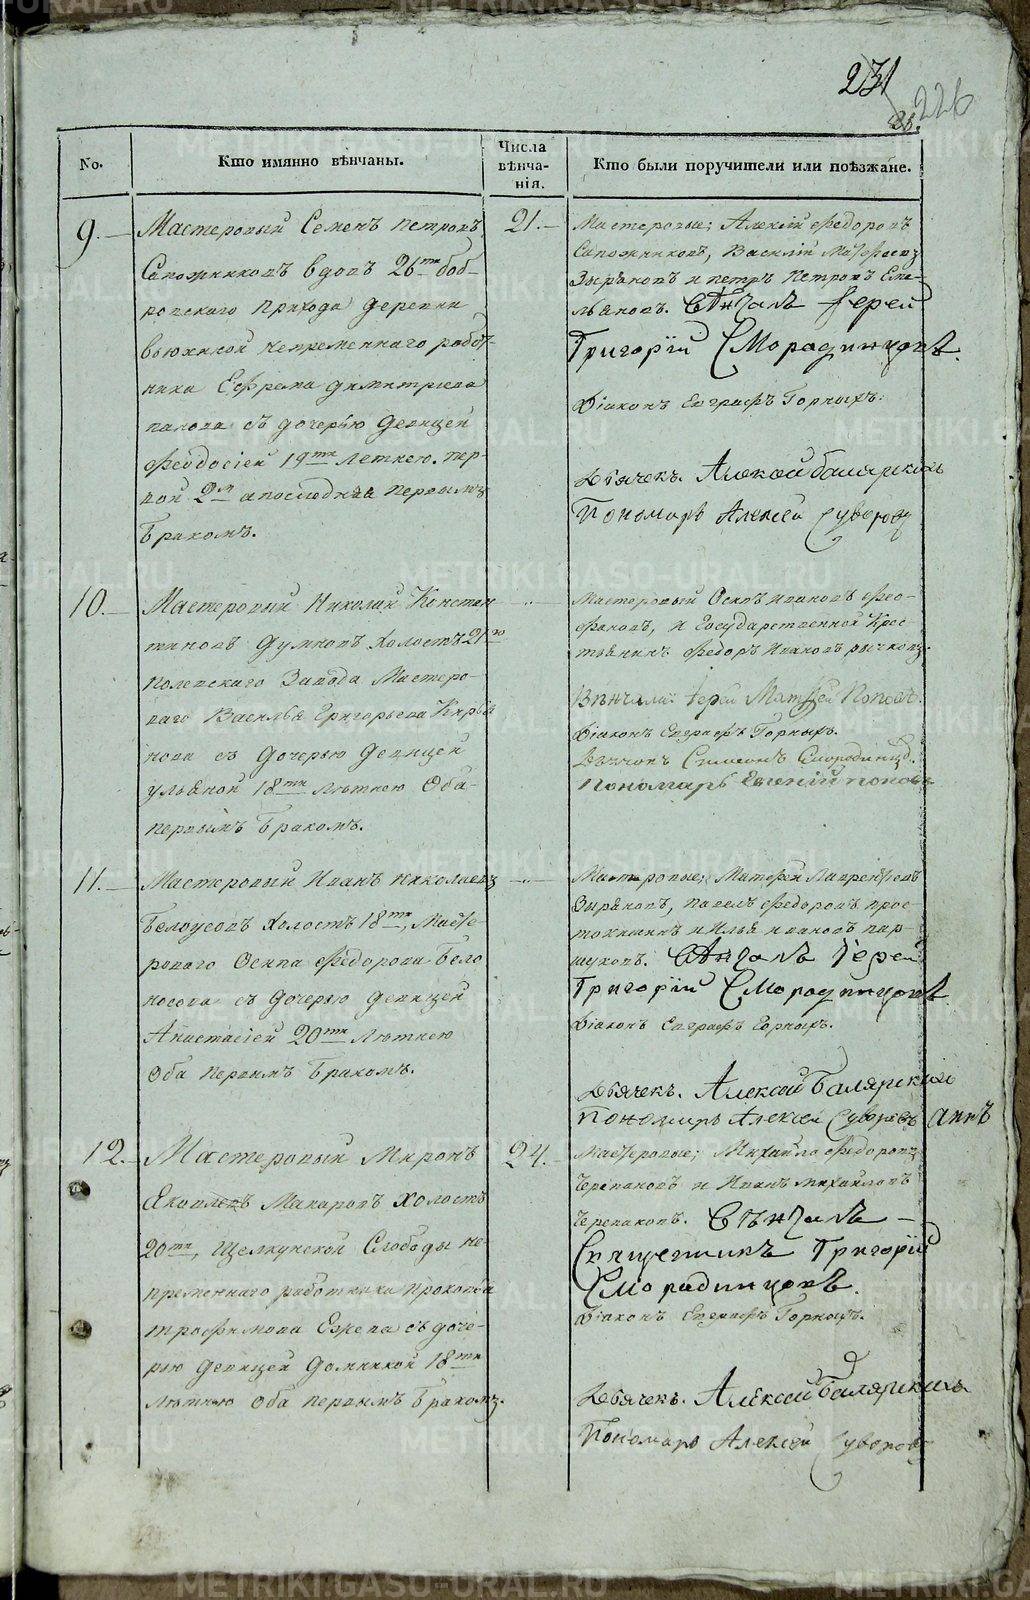 231
226
No.
Кто имянно вѣнчаны.
Числа
вѣнча-
нія.
Кто были поручители или поѣзжане.
9.
Мастеровый Семенъ Петровъ
Сапожниковъ вдовъ 26ти боб-
ровскаго прихода деревни
вьюхиной непременнаго работ-
ника Ефрема димитріева
панова съ дочерью девицей
Феодосіей 19ти летнею. пер-
вой 2м а последняя первымъ
бракомъ.
21.
Мастеровые; Алексій Федоровъ
Сапожниковъ, Василій
Зыряновъ и петръ Петровъ Еме-
льяновъ. Вѣнчалъ Іерей
Григорій Смородинцовъ.
Діаконъ Евграфъ Горныхъ.
Дьячекъ. Алексей Балярскихъ
Пономарь Алексей Суворовъ
10.
Мастеровый Николай Констан
тиновъ Думновъ холостъ 21го
полевскаго Завода Мастеро-
ваго Василья Григорьева Кирья
нова съ дочерью девицей
ульяной 18ти лѣтнею Оба-
первымъ бракомъ.
Мастеровый Осипъ Ивановъ Фео-
фановъ, и Государственной Крес-
тьянинъ Федоръ Ивановъ рычковъ.
Вѣнчали: Іерей Матфей Поповъ.
Діаконъ Евграфъ Горныхъ.
Дьячокъ Симеонъ Смородинцо.
Пономарь Евгеній поповъ
11.
Мастеровый Иванъ Николаевъ
Белоусовъ холостъ 18ти, Масте-
роваго Осипа Федорова Бело
носова съ дочерью девицей
Анастасіей 20ти лѣтнею
Оба первымъ бракомъ.
Мастеровые; Матфей Лаврентьевъ
Зыряновъ, павелъ Федоровъ прос-
токишинъ и Илья ивановъ пар-
шуковъ. Вѣнчалъ Іерей
Григорій Смородинцовъ
Діаконъ Евграфъ Горныхъ.
Дьячекъ. Алексей Балярскихъ
Пономарь Алексей Суворовъ
12.
Мастеровый Миронъ
Яковлевъ Макаровъ холостъ
20ти, Щелкунской Слободы не-
пременнаго работника прокопья
трофимова Ежева съ доче-
рью девицей Домникой 18ти
лѣтнею Оба первымъ бракомъ.
24.
Мастеровые; Михайла Федоровъ
Черепановъ и Иванъ михайловъ
Черепановъ. Вѣнчалъ
Священникъ Григорій
Смородинцовъ.
Діаконъ Евграфъ Горныхъ.
Дьячекъ. Алексей Балярскихъ
Пономарь Алексей Суворовъ
METRIKI.GASO-URAL.RU